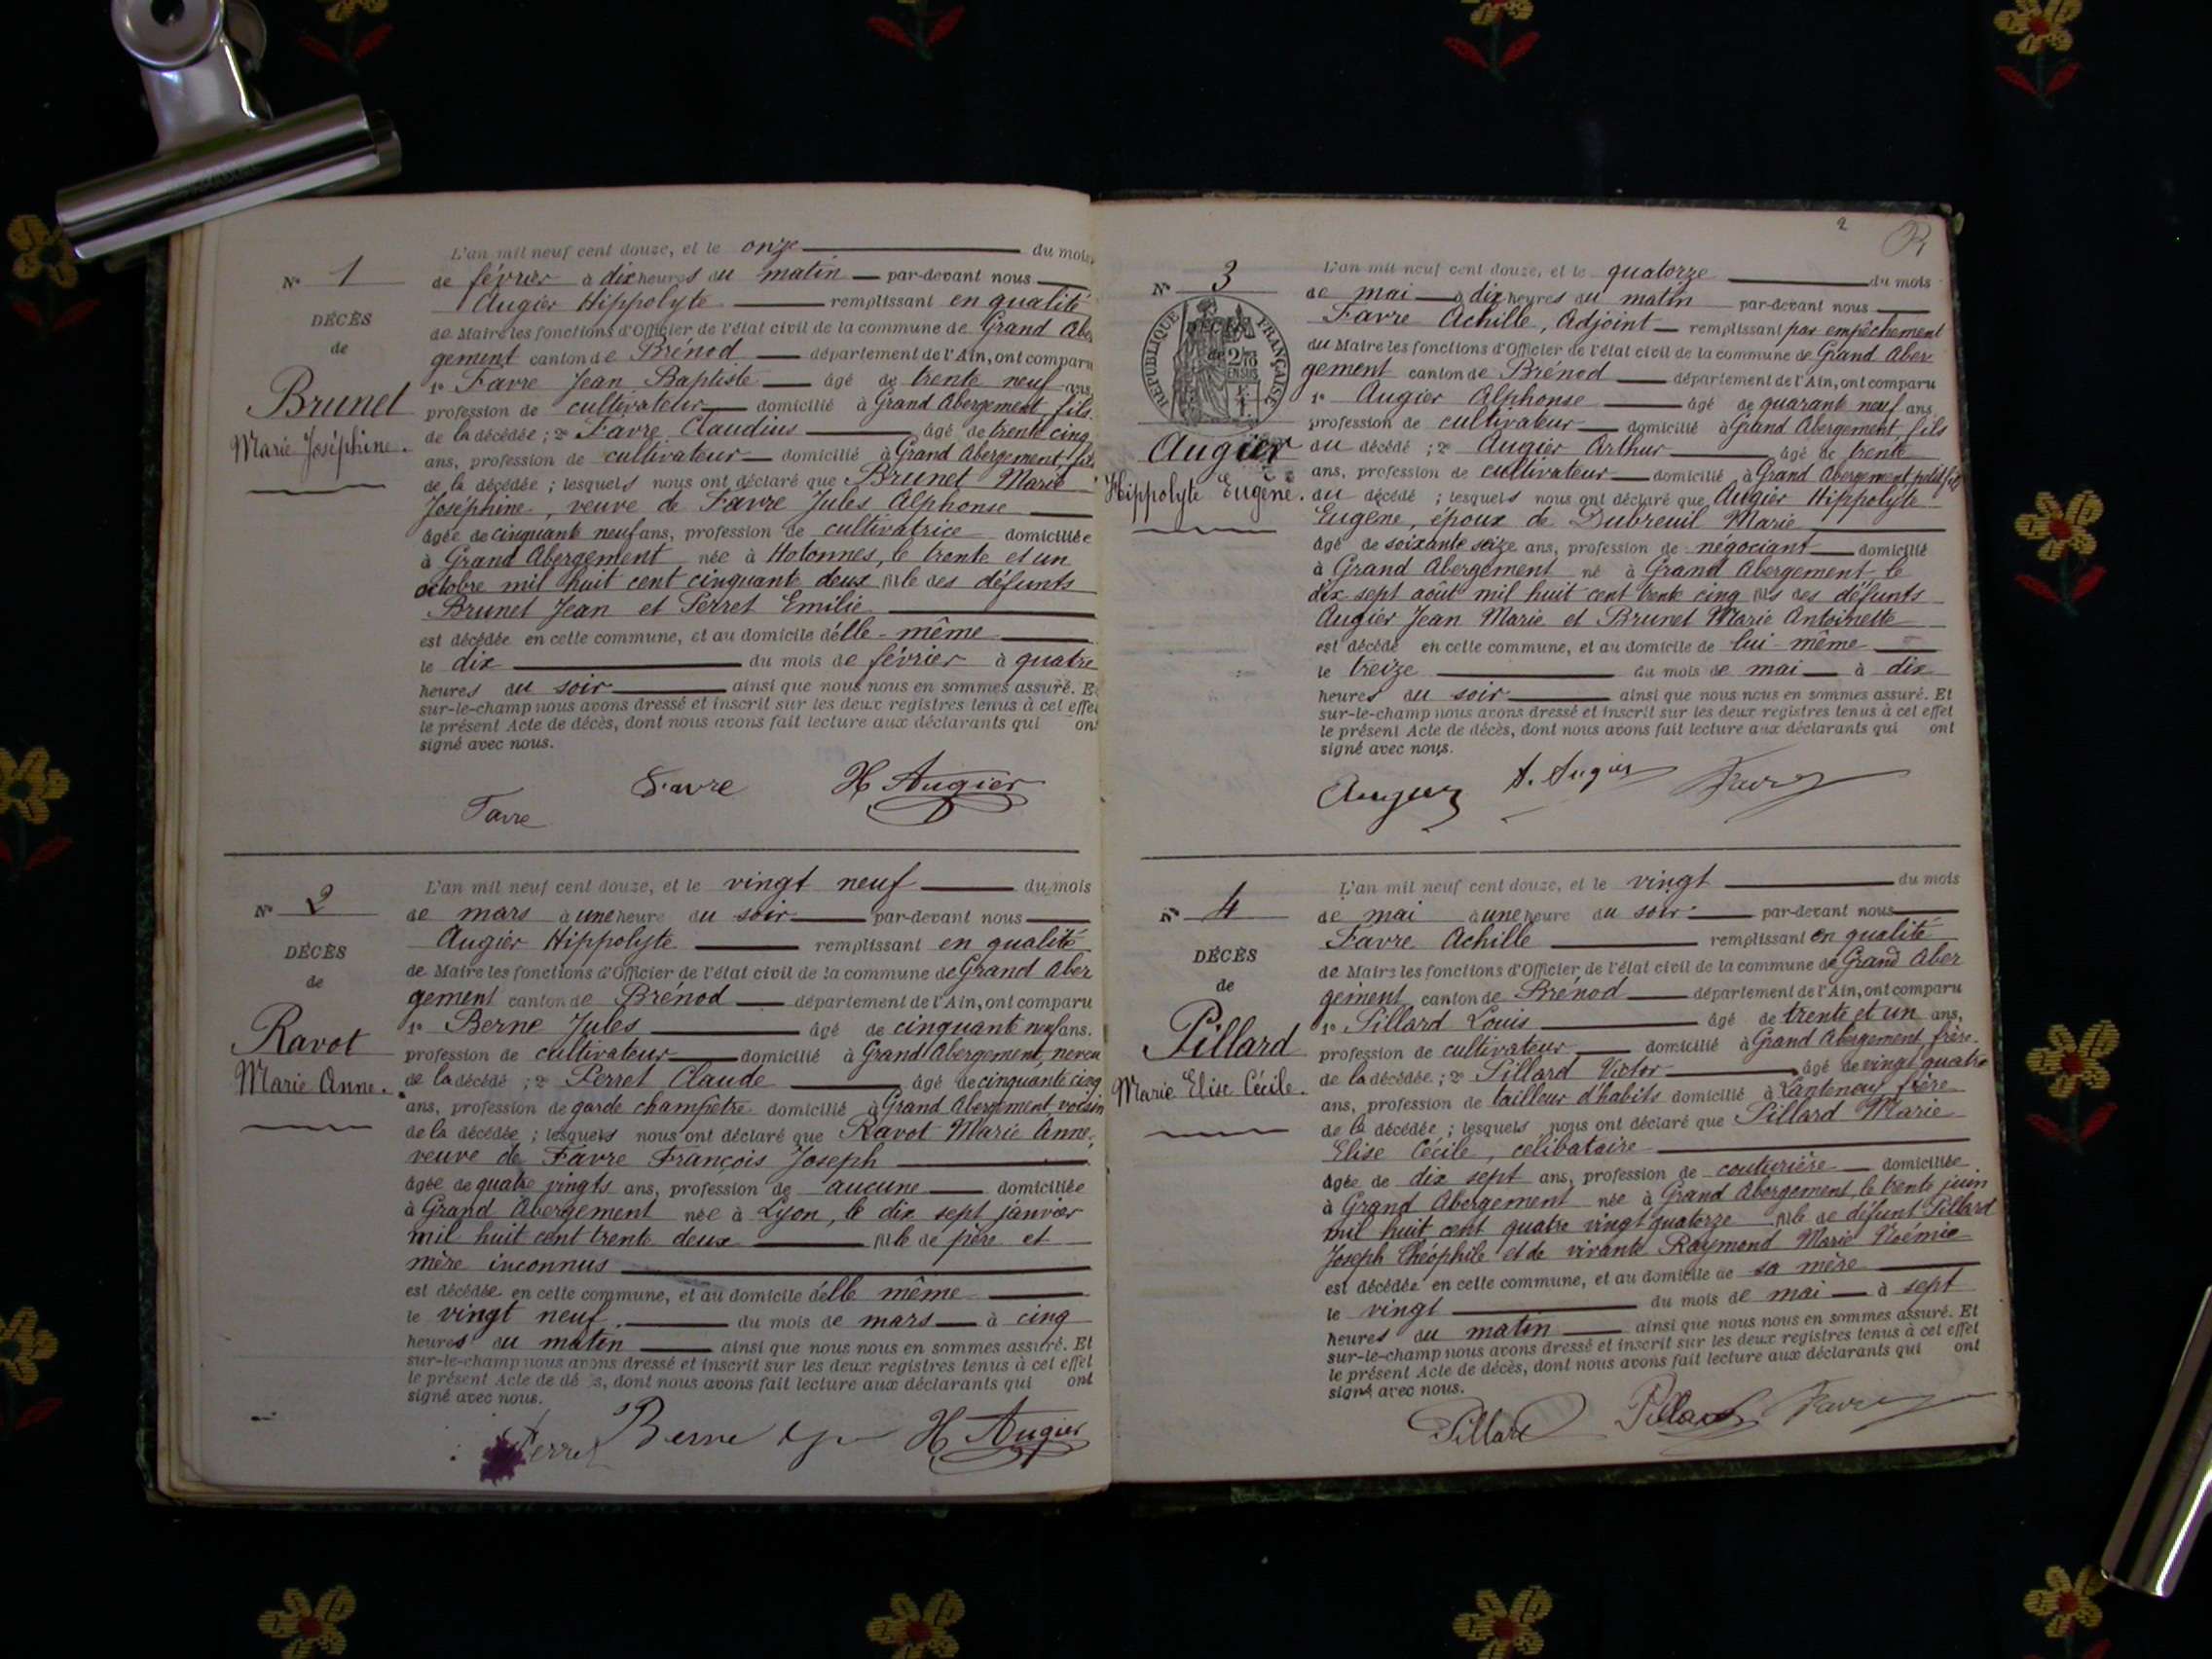 L'an mil neuf cent douze, et le onze du mois
N° 1
de février à dix heures du matin par-devant nous
Augier Hippolyte remplissant en qualité
DÉCÈS
de Maire les fonctions d'Officier de l'état civil de la commune de Grand Aber
de
gement canton de Brénod département de l'Ain, ont comparu
1° Favre Jean Baptiste âgé de trente neuf ans,
Brunet
profession de cultivateur domicilié à Grand Abergement, fils
Marie Joséphine.
de la décédée ; 2° Favre Claudius âgé de trente cinq
ans, profession de cultivateur domicilié à Grand Abergement, fils
de la décédée ; lesquels nous ont déclaré que Brunet Marie
Joséphine, veuve de Favre Jules Alphonse
âgée de cinquante neuf ans, profession de cultivatrice domiciliée
à Grand Abergement née à Hotonnes, le trente et un
octobre mil huit cent cinquante deux fille des défunts
Brunet Jean et Perret Emilie
est décédée en cette commune, et au domicile d'elle-même
le dix du mois de février à quatre
heures du soir ainsi que nous nous en sommes assuré. Et
sur-le-champ nous avons dressé et inscrit sur les deux registres tenus à cet effet
le présent Acte de décès, dont nous avons fait lecture aux déclarants qui ont
signé avec nous.
Favre Favre H Augier
L'an mil neuf cent douze, et le vingt neuf du mois
N° 2
de mars à une heure du soir par-devant nous
Augier Hippolyte remplissant en qualité
DÉCÈS
de Maire les fonctions d'Officier de l'état civil de la commune de Grand Aber
de
gement canton de Brénod département de l'Ain, ont comparu
1° Berne Jules âgé de cinquante neuf ans.
Ravot
profession de cultivateur domicilié à Grand Abergement, neveu
Marie Anne.
de la décédé ; 2° Perret Claude âgé de cinquante cinq
ans, profession de garde champêtre domicilié à Grand Abergement, voisin
de la décédée ; lesquels nous ont déclaré que Ravot Marie Anne,
veuve de Favre François Joseph
âgée de quatre vingts ans, profession de aucune domiciliée
à Grand Abergement née à Lyon, le dix sept janvier
mil huit cent trente deux fille de père et
mère inconnus
est décédée en cette commune, et au domicile d'elle même
le vingt neuf du mois de mars à cinq
heures du matin ainsi que nous nous en sommes assuré. Et
sur-le-champ nous avons dressé et inscrit sur les deux registres tenus à cet effet
le présent Acte de dé s, dont nous avons fait lecture aux déclarants qui ont
signé avec nous.
Perret Berne H Augier
2
L'an mil neuf cent douze, et le quatorze du mois
N° 3
de mai à dix heures du matin par-devant nous
Favre Achille, Adjoint remplissant par empêchement
RÉPUBLIQUE FRANÇAISE
DÉCÈS
de
2/10
EN SUS
du Maire les fonctions d'Officier de l'état civil de la commune de Grand Aber
gement canton de Brénod département de l'Ain, ont comparu
1° Augier Alphonse âgé de quarante neuf ans
profession de cultivateur domicilié à Grand Abergement, fils
Augier
du décédé ; 2° Augier Arthur âgé de trente
ans, profession de cultivateur domicilié à Grand Abergement petit fils
Hippolyte Eugène.
du décédé ; lesquels nous ont déclaré que Augier Hippolyte
Eugène, époux de Dubreuil Marie
âgé de soixante seize ans, profession de négociant domicilié
à Grand Abergement né à Grand Abergement le
dix-sept août mil huit cent trente cinq fils des défunts
Augier Jean Marie et Brunet Marie Antoinette
est décédé en cette commune, et au domicile de lui-même
le treize du mois de mai à dix
heures du soir ainsi que nous nous en sommes assuré. Et
sur-le-champ nous avons dressé et inscrit sur les deux registres tenus à cet effet
le présent Acte de décès, dont nous avons fait lecture aux déclarants qui ont
signé avec nous.
Augier A. Augier Favre
L'an mil neuf cent douze, et le vingt du mois
N° 4
de mai à une heure du soir par-devant nous
Favre Achille remplissant en qualité
DÉCÈS
de Maire les fonctions d'Officier de l'état civil de la commune de Grand Aber
de
gement canton de Brénod département de l'Ain, ont comparu
1° Pillard Louis âgé de trente et un ans,
Pillard
profession de cultivateur domicilié à Grand Abergement, frère
Marie Elise Cécile.
de la décédée ; 2° Pillard Victor âgé de vingt quatre
ans, profession de tailleur d'habits domicilié à Lantenay frère
de la décédée ; lesquels nous ont déclaré que Pillard Marie
Elise Cécile, célibataire
âgée de dix sept ans, profession de couturière domiciliée
à Grand Abergement née à Grand Abergement, le trente juin
mil huit cent quatre vingt quatorze fille de défunt Pillard
Joseph Théophile et de vivante Raymond Marie Noémie
est décédée en cette commune, et au domicile de sa mère
le vingt du mois de mai à sept
heures du matin ainsi que nous nous en sommes assuré. Et
sur-le-champ nous avons dressé et inscrit sur les deux registres tenus à cet effet
le présent Acte de décès, dont nous avons fait lecture aux déclarants qui ont
signé avec nous.
Pillard Pillard Favre